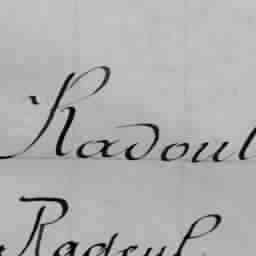 Radoul
Radeul